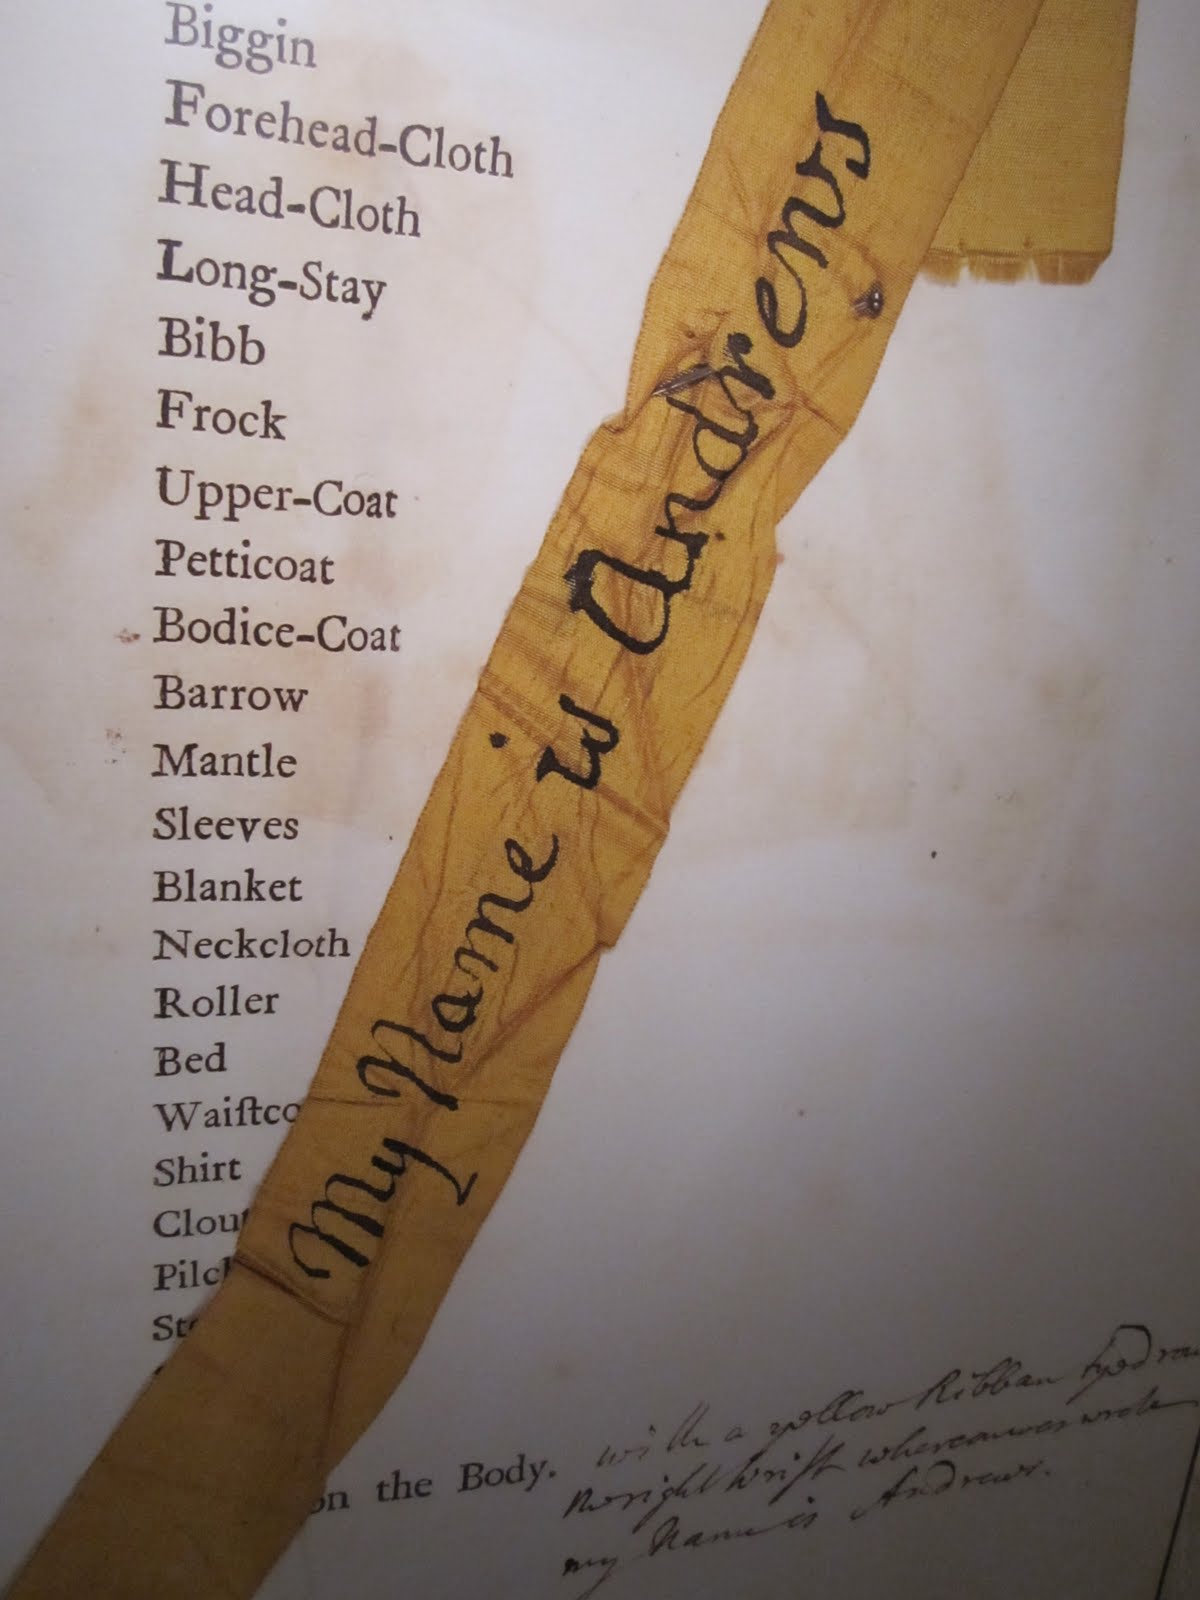 Biggin
Forehead-Cloth
Head-Cloth
Long-Stay
Bibb
Frock
Upper-Coat
Petticoat
Bodice-Coat
Barrow
Mantle
Sleeves
Blanket
Neckcloth
Roller
Bed
Waiſtco
Shirt
Clout
Pilch
St
My Name is Andrews
on the Body. with a yellow Ribban tyed rou
the right wrist whereon was wrote
my Name is Andrews.